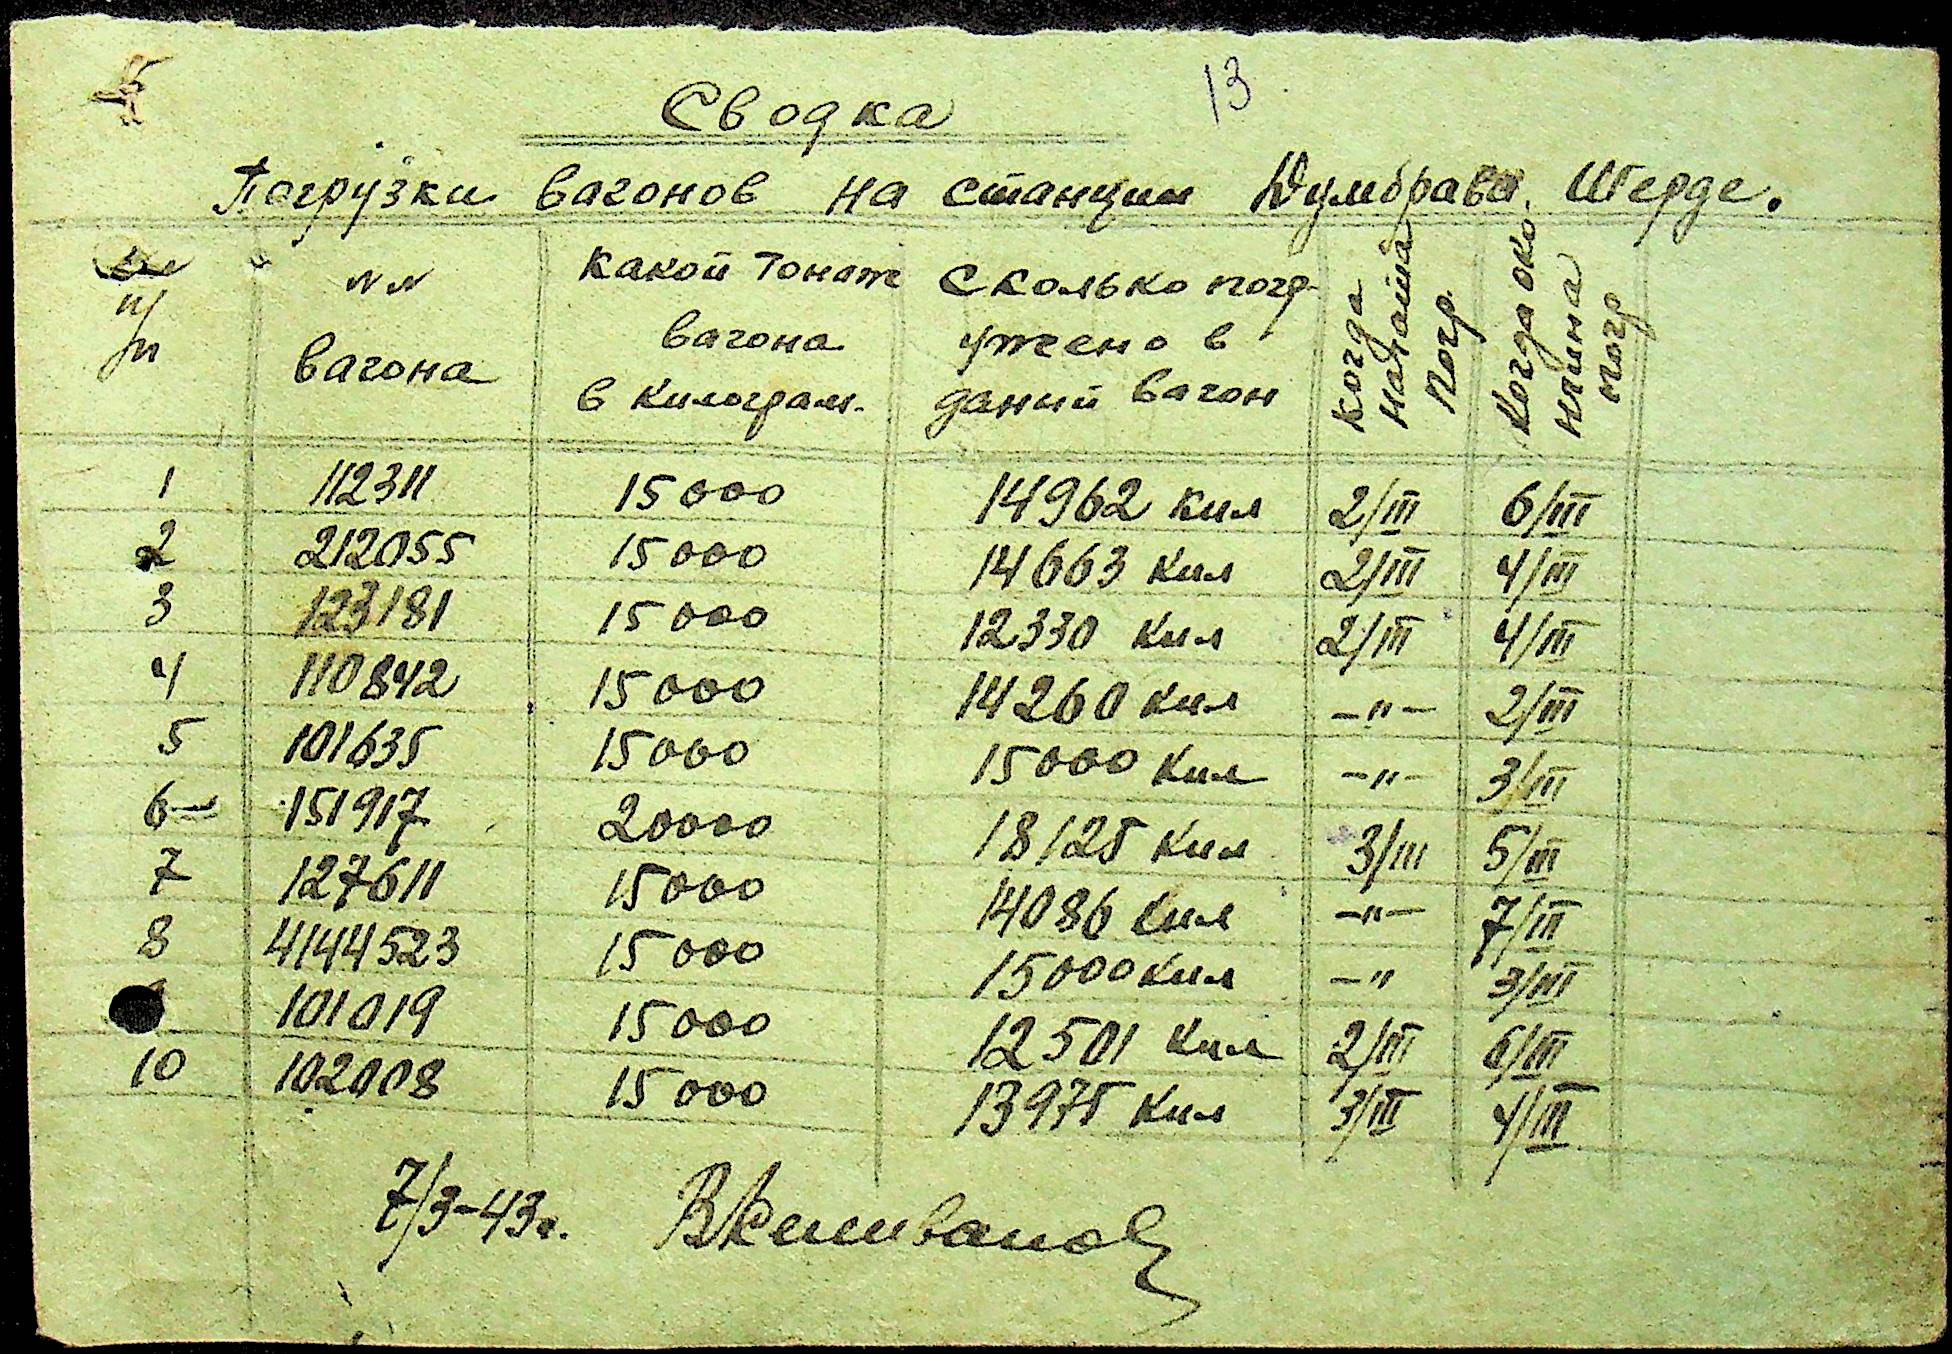 13
Сводка
Погрузки вагонов на станции Думбрава Шерде.
п/п
NN вагона
какой тонаж вагона в килограм.
Сколько погружено в даний вагон
когда начата погр.
Когда окончина погр
1 112311 15000 14962 кил 2/III 6/III
2 212055 15000 14663 кил 2/III 4/III
3 123181 15000 12330 кил 2/III 4/III
4 110842 15000 14260 кил –"– 2/III
5 101635 15000 15000 кил –"– 3/III
6 151917 20000 18125 кил 3/III 5/III
7 127611 15000 14086 кил –"– 7/III
8 4144523 15000 15000 кил –" 3/III
101019 15000 12501 кил 2/III 6/III
10 102008 15000 13975 кил 3/III 4/III
7/3-43г.